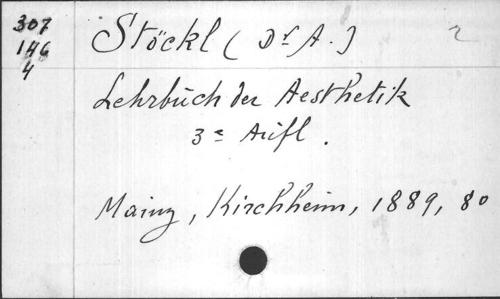 307
146
4
Stöckl (Dr A.)
Lehrbuch der Aesthetik
3e Aufl.
Mainz, Kirchheim, 1889, 80